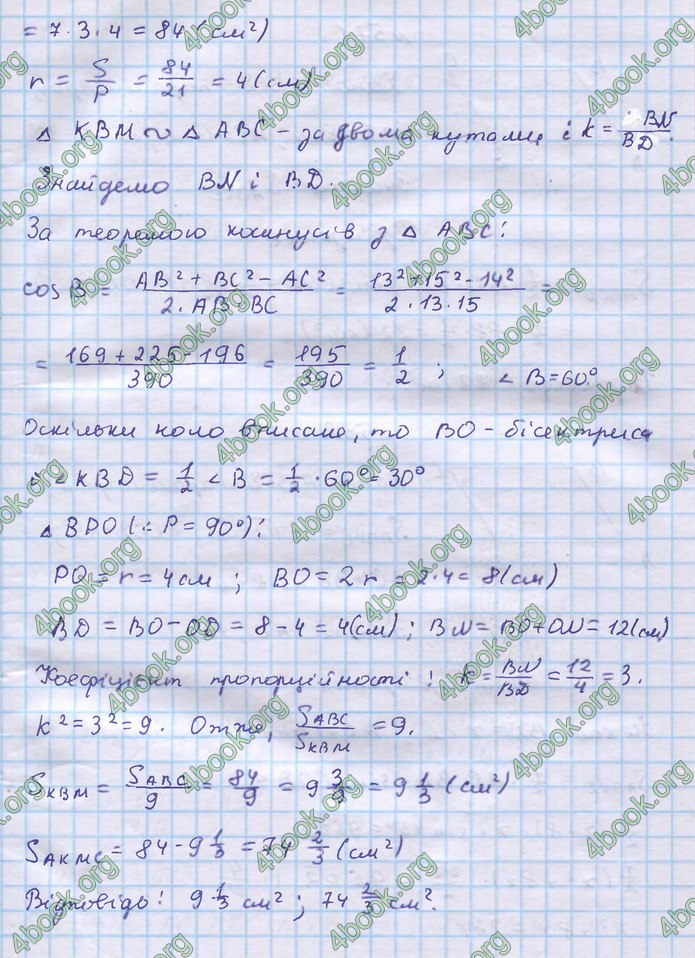 = 7·3·4 = 84 (см²)
r = S/P = 84/21 = 4 (см)
△ KBM ~ △ ABC – за двома кутами і k = BN/BD.
Знайдемо BN і BD.
За теоремою косинусів з △ ABC:
cos B = (AB² + BC² − AC²)/(2·AB·BC) = (13² + 15² − 14²)/(2·13·15) =
= (169 + 225 − 196)/390 = 195/390 = 1/2 ; ∠B = 60°
Оскільки коло вписане, то BO – бісектриса
і ∠KBD = 1/2 ∠B = 1/2 · 60° = 30°
△ BPO (∠P = 90°):
PO = r = 4 см ; BO = 2r = 2·4 = 8 (см)
BD = BO − OD = 8 − 4 = 4 (см) ; BN = BO + ON = 12 (см)
Коефіцієнт пропорційності: k = BN/BD = 12/4 = 3.
k² = 3² = 9. Отже, S_ABC/S_KBM = 9.
S_KBM = S_ABC/9 = 84/9 = 9 3/9 = 9 1/3 (см²)
S_AKMC = 84 − 9 1/3 = 74 2/3 (см²)
Відповідь: 9 1/3 см² ; 74 2/3 см².
4book.org